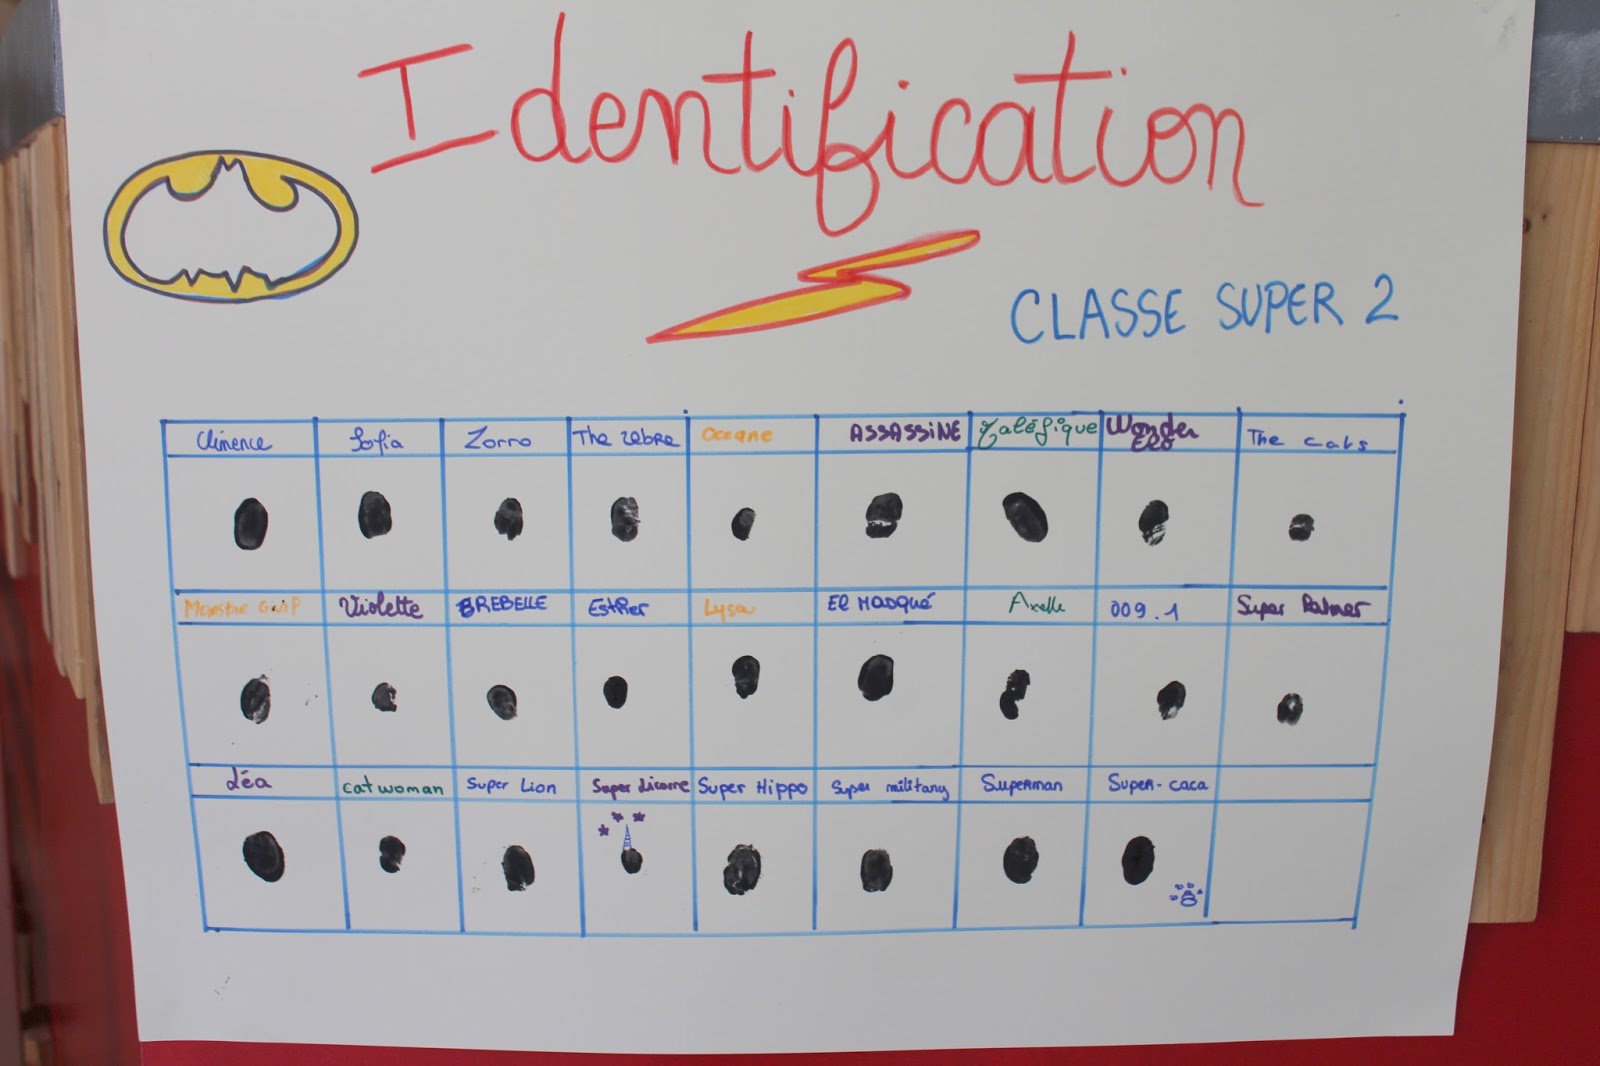 Identification
CLASSE SUPER 2
Clémence Sofia Zorro The zebre Oceane ASSASSINE Maléfique Wonder The cats
Elo
Monstre Violette REBELLE Esther Lysa El MasQué Axelle 009.1 Super Palmer
Léa catwoman Super Lion Super Licorne Super Hippo Super military Superman Super-caca